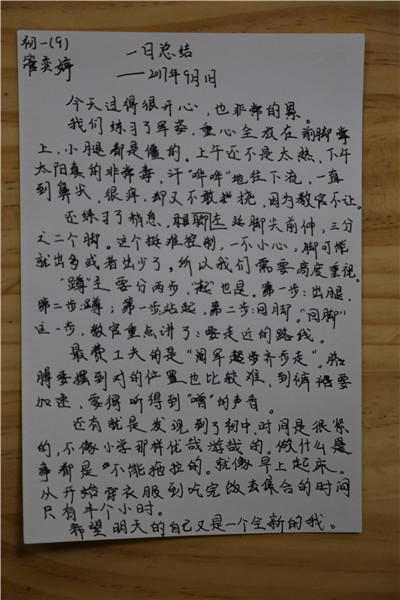 初一(9)
管奕婷
一日总结
——2017年9月1日
今天过得很开心，也非常的累。
我们练习了军姿，重心全放在前脚掌
上，小腿都是僵的。上午还不是太热，下午
太阳真的非常毒，汗“哗哗”地往下流，一直
到鼻尖，很痒，却又不敢挠，因为教官不让。
还练习了稍息，跟脚尖前伸，三分
之二个脚。这个挺难控制，一不小心，脚可能
就出多或者出少了，所以我们需要高度重视。
“蹲”主要分两步，“起”也是。第一步：出腿，
第二步：蹲；第一步站起，第二步：回脚。“回脚”
这一步，教官重点讲了：要走近的路线。
最费工夫的是“阅军起步齐步走”。胳
膊要摆到对的位置也比较难，到裤裙要
加速，要得听得到“噌”的声音。
还有就是发现到了初中，时间是很紧
的，不像小学那样优哉游哉的。做什么是
事都是不能拖拉的。就像早上起床。
从开始穿衣服到吃完饭去集合的时间
只有半个小时。
希望明天的自己又是一个全新的我。